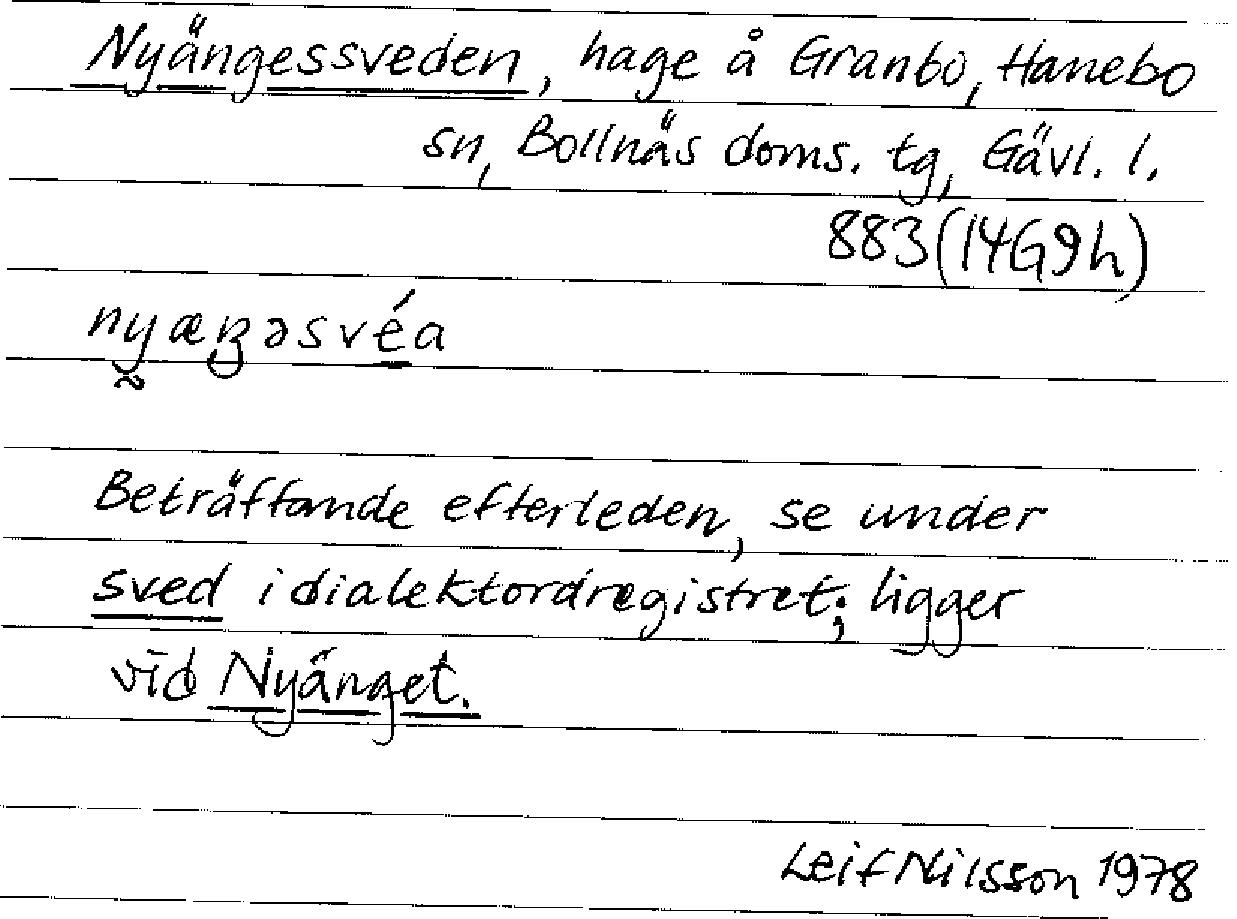 Nyängessveden, hage å Granbo, Hanebo
sn, Bollnäs doms. tg, Gävl. l.
883 (14G9h)
Beträffande efterleden, se under
sved i dialektordregistret; ligger
vid Nyänget.
Leif Nilsson 1978